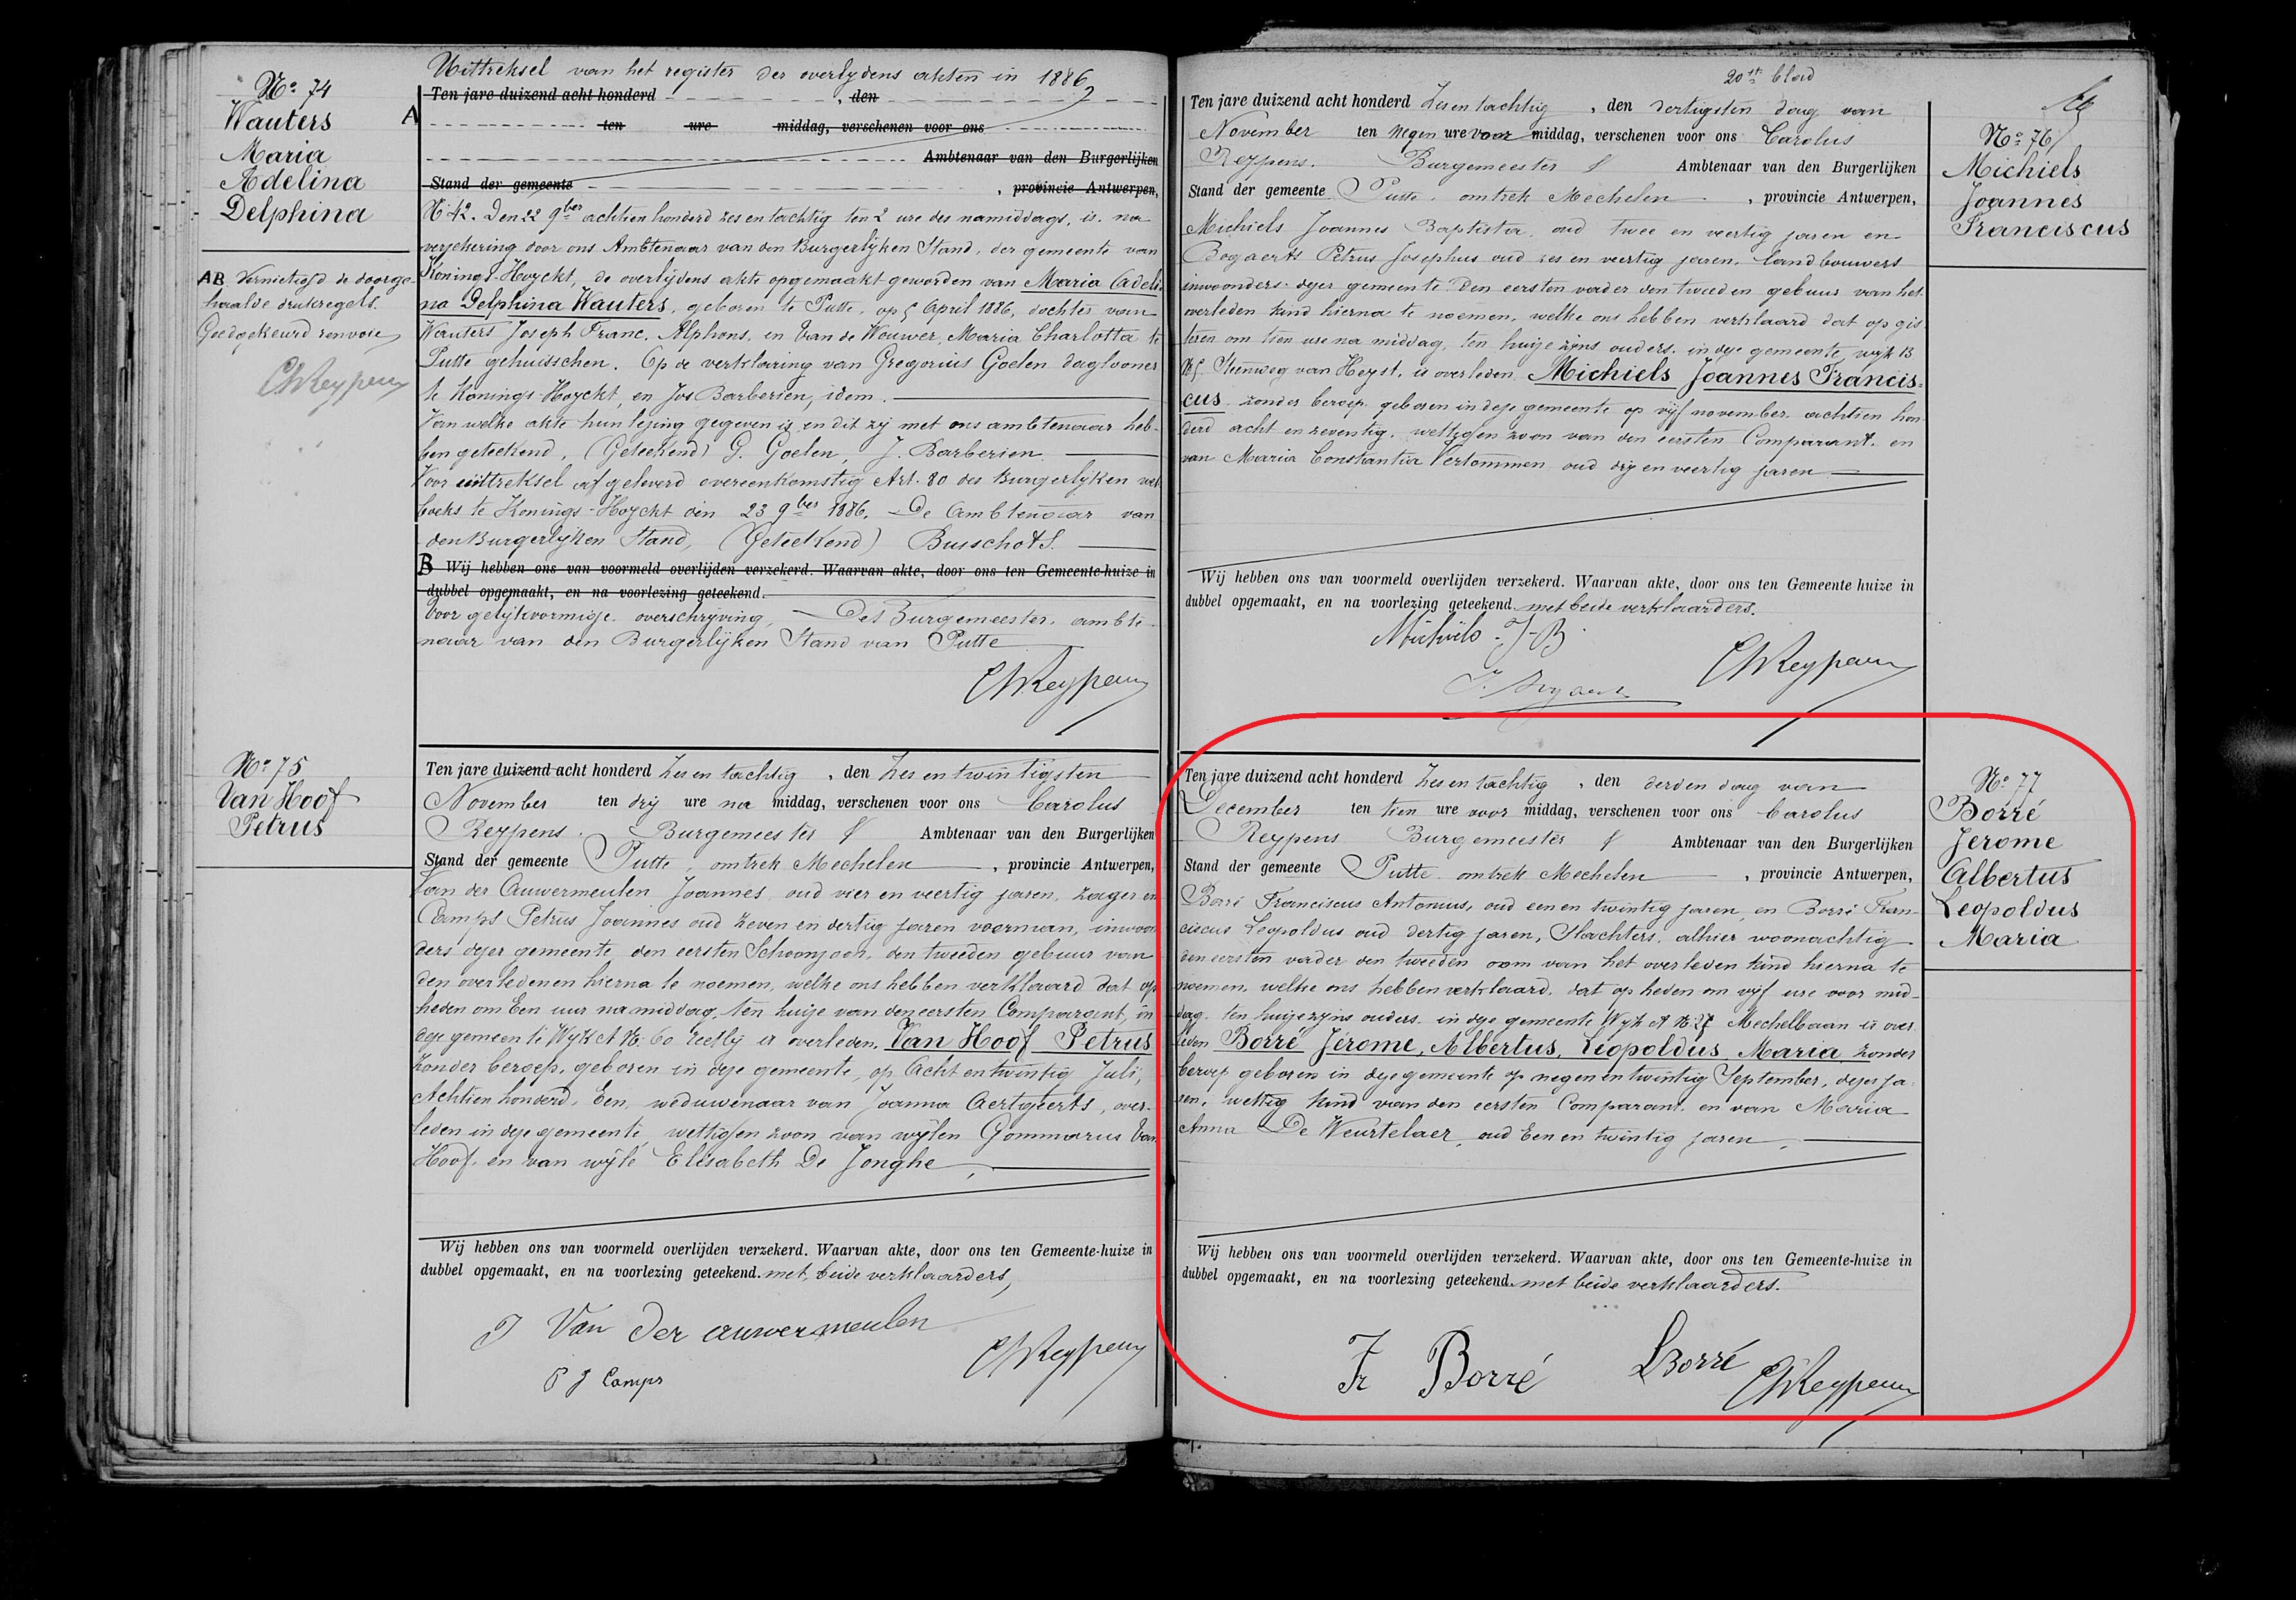 Nº 74
Wauters
Maria
Adelina
Delphina
AB Vernietigd de doorge-
haalde drukregels.
Goedgekeurd renvoie
ChReypens
Uittreksel van het register der overlydens akten in 1886
A Ten jare duizend acht honderd , den
ten ure middag, verschenen voor ons
Ambtenaar van den Burgerlijken
Stand der gemeente , provincie Antwerpen,
Nº 42. Den 22 9ber achtien honderd zes en tachtig ten 2 ure des namiddags, is na
verzekering door ons Ambtenaar van den Burgerlijken Stand, der gemeente van
Konings-Hoyckt, de overlijdens akte opgemaakt geworden van Maria Adeli-
na Delphina Wauters, geboren te Putte, op 5 April 1886, dochter van
Wauters Joseph Franc. Alphons, en Van de Wouwer, Maria Charlotta te
Putte gehuisschen. Op de verklaring van Gregorius Goelen daglooner
te Konings-Hoyckt, en Jos Barberien, idem.
Van welke akte hun lezing gegeven is en dit zij met ons ambtenaar heb-
ben geteekend, (Geteekend) G. Goelen, J. Barberien.
Voor uittreksel afgeleverd overeenkomstig Art. 80 des Burgerlijken wet-
boeks te Konings-Hoyckt den 23 9ber 1886. De Ambtenaar van
den Burgerlijken Stand, (Geteekend) Busschots.
B Wij hebben ons van voormeld overlijden verzekerd. Waarvan akte, door ons ten Gemeente-huize in
dubbel opgemaakt, en na voorlezing geteekend.
Voor gelijkvormige overschrijving, Des Burgemeester, ambte-
naar van den Burgerlijken Stand van Putte
ChReypens
Nº 75
Van Hoof
Petrus
Ten jare duizend acht honderd Zes en tachtig , den Zes en twintigsten
November ten drij ure na middag, verschenen voor ons Carolus
Reypens. Burgemeester Ambtenaar van den Burgerlijken
Stand der gemeente Putte, omtrek Mechelen , provincie Antwerpen,
Van der Auwermeulen Joannes, oud vier en veertig jaren, zager en
Camps Petrus Joannes oud zeven en dertig jaren voorman, inwoon-
ders dezer gemeente, den eersten Schoonzoon, den tweeden gebuur van
den overledenen hierna te noemen, welke ons hebben verklaard dat op
heden om Een uur namiddag, ten huize van den eersten Comparant, in
deze gemeente Wyk A Nº 60 is overleden, Van Hoof Petrus
zonder beroep, geboren in deze gemeente, op Acht en twintig Juli,
Achtien honderd, Een, weduwenaar van Joanna Aertgeerts, over-
leden in deze gemeente, wettigen zoon van wijlen Gommarus Van
Hoof, en van wijle Elisabeth De Jonghe,
Wij hebben ons van voormeld overlijden verzekerd. Waarvan akte, door ons ten Gemeente-huize in
dubbel opgemaakt, en na voorlezing geteekend. met beide verklaarders,
J Van der auwermeulen
P J Camps
ChReypens
20st blad
Ten jare duizend acht honderd Zes en tachtig , den dertigsten dag van
November ten Negen ure voor middag, verschenen voor ons Carolus
Reypens. Burgemeester Ambtenaar van den Burgerlijken
Stand der gemeente Putte omtrek Mechelen , provincie Antwerpen,
Michiels Joannes Baptista, oud twee en veertig jaren en
Bogaerts Petrus Josephus oud zes en veertig jaren. landbouwers
inwoonders dezer gemeente Den eersten vader den tweeden gebuur van het
overleden kind hierna te noemen, welke ons hebben verklaard dat op gis-
teren om tien ure na middag, ten huize zijns ouders, in deze gemeente, wijk B
Nº 5 Steenweg van Heyst, is overleden, Michiels Joannes Francis-
cus zonder beroep geboren in deze gemeente op vijf november achtien hon-
derd acht en zeventig, wettigen zoon van den eersten Comparant. en
van Maria Constantia Vertommen oud drij en veertig jaren
Wij hebben ons van voormeld overlijden verzekerd. Waarvan akte, door ons ten Gemeente huize in
dubbel opgemaakt, en na voorlezing geteekend. met beide verklaarders.
Michiels J-B
ChReypens
Nº 76
Michiels
Joannes
Franciscus
Ten jare duizend acht honderd Zes en tachtig , den derden dag van
December ten tien ure voor middag, verschenen voor ons Carolus
Reypens Burgemeester Ambtenaar van den Burgerlijken
Stand der gemeente Putte omtrek Mechelen , provincie Antwerpen,
Borré Franciscus Antonius, oud een en twintig jaren, en Borré Fran-
ciscus Leopoldus oud dertig jaren, Slachters, alhier woonachtig
den eersten vader den tweeden oom van het overleden kind hierna te
noemen, welke ons hebben verklaard, dat op heden om vijf ure voor mid-
dag, ten huize zijns ouders, in deze gemeente Wyk A Nº 27 Mechelbaan is over-
leden Borré Jérome, Albertus, Léopoldus Maria, zonder
beroep geboren in deze gemeente op negen en twintig September, dezes ja-
ren, wettig kind van den eersten Comparant, en van Maria
Anna De Weurtelaer, oud Een en twintig jaren,
Wij hebben ons van voormeld overlijden verzekerd. Waarvan akte, door ons ten Gemeente-huize in
dubbel opgemaakt, en na voorlezing geteekend. met beide verklaarders.
Fr Borré
L Borré
ChReypens
Nº 77
Borré
Jerome
Albertus
Leopoldus
Maria